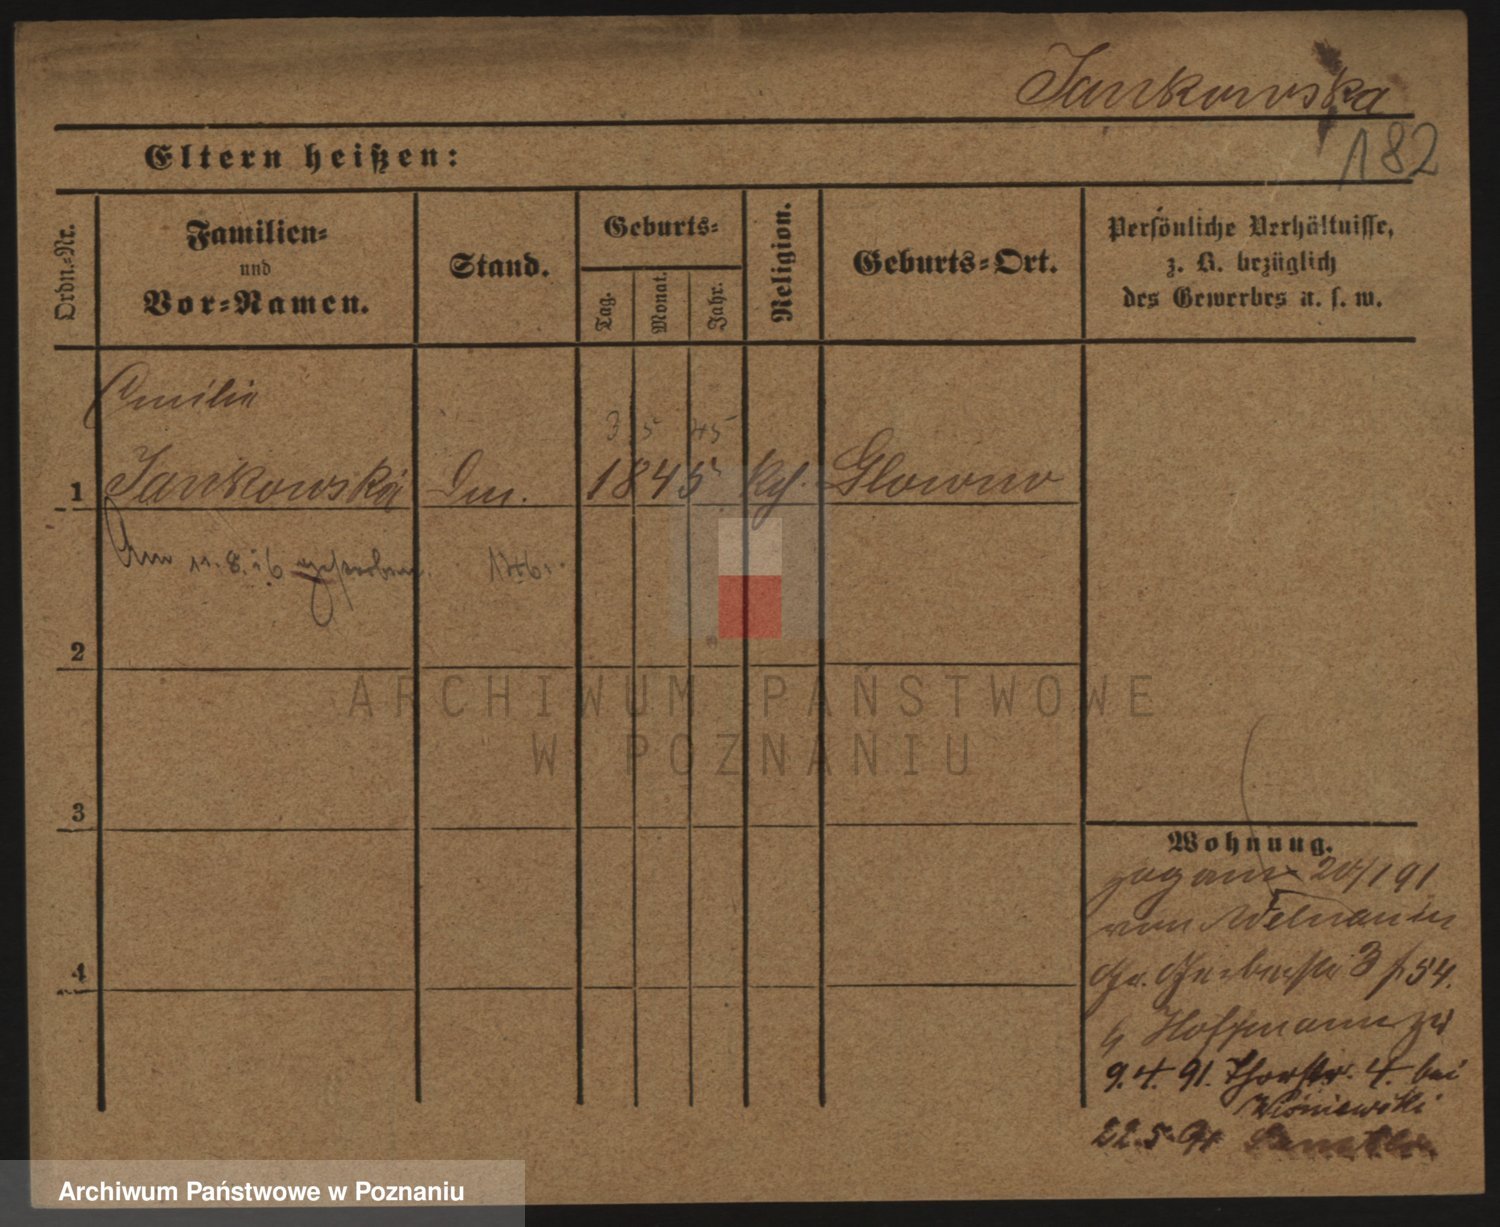 Jankowska
182
Eltern heißen:
Ordn.-Nr.
Familien-
und
Vor-Namen.
Stand.
Geburts-
Tag.
Monat.
Jahr.
Religion.
Geburts-Ort.
Persönliche Verhältnisse,
z. B. bezüglich
des Gewerbes u. s. w.
Emilie
3 5 45
1 Jankowska 1845 Glowno
Am 11. 8. gestorben.
2
3
4
Wohnung.
20/1 91
von
3
Hoffmann
9. 4. 91. Thorstr. 4. bei
Wisniewski
22. 5. 91
ARCHIWUM PAŃSTWOWE
W POZNANIU
Archiwum Państwowe w Poznaniu